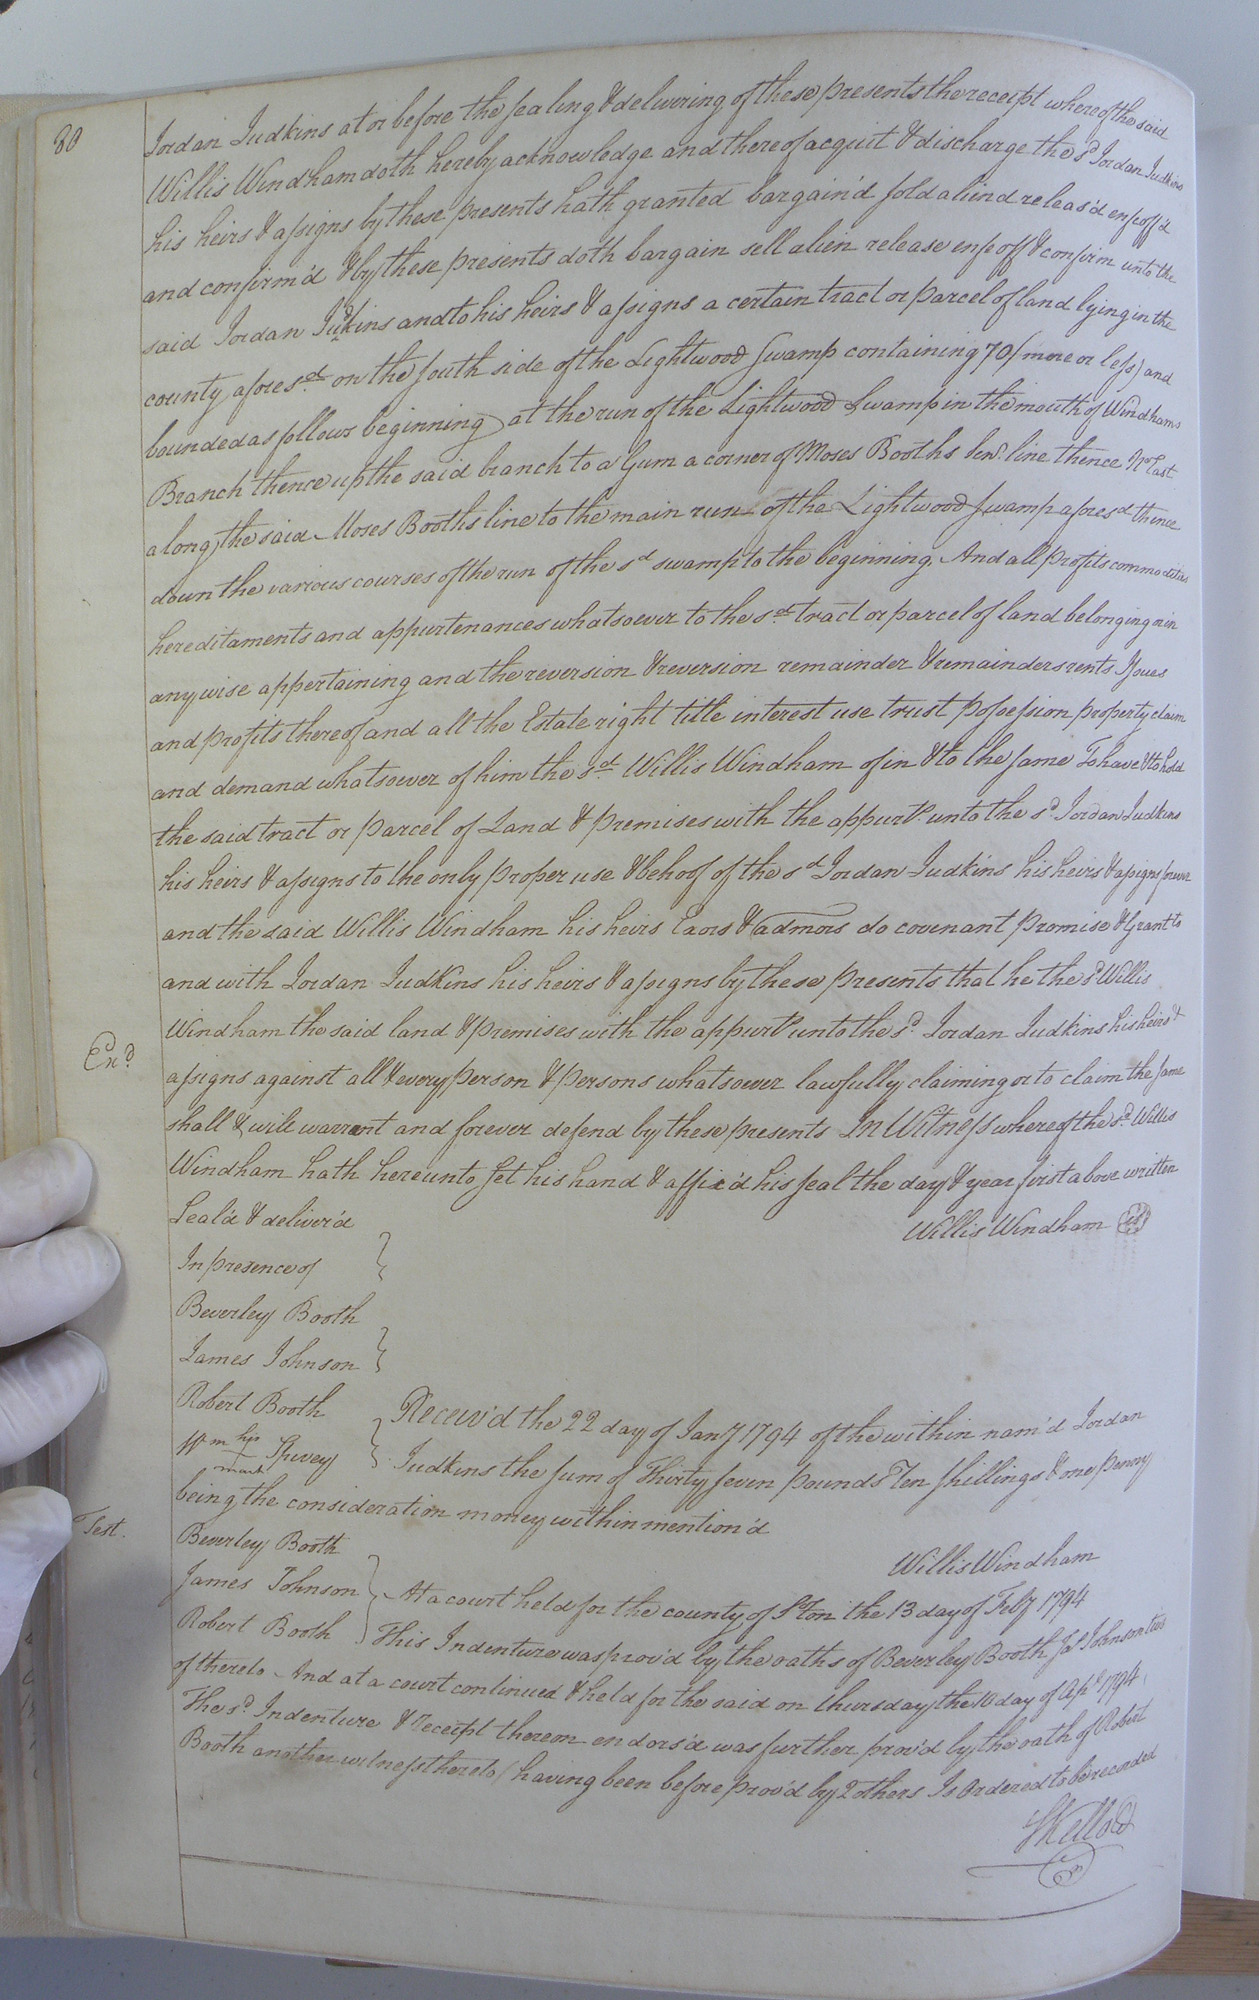 80
Jordan Judkins at or before the sealing & delivering of these presents the receipt whereof the said
Willis Windham doth hereby acknowledge and thereof acquit & discharge the sd Jordan Judkins
his heirs & assigns by these presents hath granted bargain'd sold aliend releas'd enfeoff'd
and confirm'd & by these presents doth bargain sell alien release enfeoff & confirm unto the
said Jordan Judkins and to his heirs & assigns a certain tract or parcel of land lying in the
county aforesd on the south side of the Lightwood Swamp containing 70 (more or less) and
bounded as follows beginning at the run of the Lightwood Swamp in the mouth of Windhams
Branch thence up the said branch to a Gum a corner of Moses Booths Senr. line thence No East
along the said Moses Booths line to the main run of the Lightwood Swamp aforesd thence
down the various courses of the run of the sd swamp to the beginning. And all profits commodities
hereditaments and appurtenances whatsoever to the sd tract or parcel of land belonging or in
anywise appertaining and the reversion & reversion remainder & remainders rents Issues
and profits thereof and all the Estate right title interest use trust possession property claim
and demand whatsoever of him the sd Willis Windham of in & to the same To have & to hold
the said tract or parcel of Land & premises with the appurts. unto the sd Jordan Judkins
his heirs & assigns to the only proper use & behoof of the sd Jordan Judkins his heirs & assigns forever
and the said Willis Windham his heirs Exors & admors do covenant promise & Grant to
and with Jordan Judkins his heirs & assigns by these presents that he the sd Willis
Windham the said land & premises with the appurts. unto the sd Jordan Judkins his heirs &
Exd.
assigns against all & every person & persons whatsoever lawfully claiming or to claim the same
shall & will warrant and forever defend by these presents In Witness whereof the sd. Willis
Windham hath hereunto set his hand & affix'd his seal the day & year first above written
Seal'd & deliver'd
Willis Windham
In presence of
Beverley Booth
James Johnson
Robert Booth
Wm his mark Spivey
Receiv'd the 22 day of Jany 1794 of the within nam'd Jordan
Judkins the sum of Thirty seven pounds Ten shillings & one penny
being the consideration money within mention'd
Test.
Beverley Booth
Willis Windham
James Johnson
Robert Booth
At a court held for the county of S'ton the 13 day of Feby 1794
This Indenture was prov'd by the oaths of Beverley Booth Jas Johnson two
of thereto And at a court continued & held for the said on thursday the 10 day of Apl 1794
The sd Indenture & receipt thereon endors'd was further prov'd by the oath of Robert
Booth another witness thereto (having been before prov'd by 2 others Is Ordered to be recorded